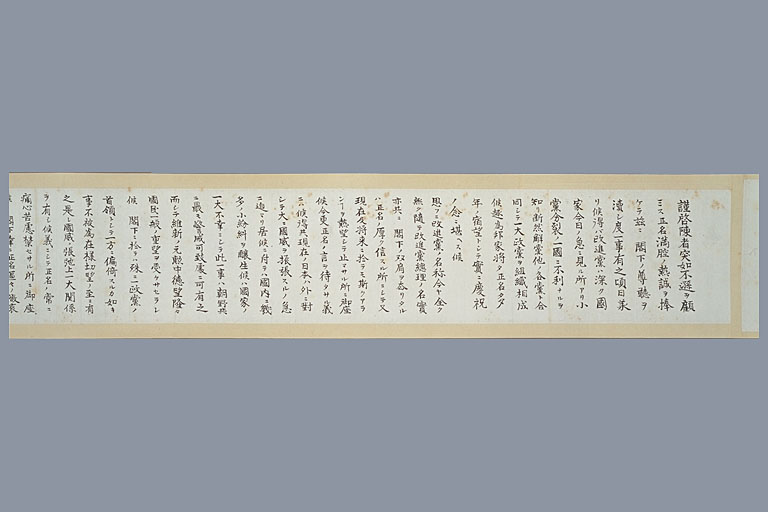 謹啓陳者突如不遜ヲ顧
ミス正名満腔ノ熱誠ヲ捧
ケテ茲ニ閣下ノ尊聴ヲ
瀆シ度一事有之頃日承
リ候得ハ改進黨ハ深ク國
家今日ノ急ニ見ル所アリ小
黨分裂ノ一國ニ不利ナルヲ
知リ断然解黨他ノ各黨ト合
同シテ一大政黨ヲ組織相成
候趣高邦家ノ将タ正名カ多
年ノ宿望トシテ實ニ慶祝
ノ念ニ堪ヘス候
思フニ改進黨ノ名称今ヤ全ク
無ク随テ改進黨總理ノ名實
亦共ニ閣下ノ双肩ヲ去リタル
ハ正名ノ厚ク信スル所ニシテ又
現在及将来ニ於テモ斯クアラ
ンヿヲ熱望シテ止マサル所ニ御座
候今更正名ノ言ヲ待タサル義
ニハ候得共現在ノ日本ハ外ニ對
シテ大ニ國威ヲ振張スルノ急
ニ迫マリ居候ニ付テハ國内ニ幾
多ノ小紛糾ヲ醸生候ハ國家ノ
一大不幸ニシテ此一事ハ朝野共
ニ最モ警戒可致儀ニ可有之
而シテ維新ノ元勲中徳望隆々
國民一般ノ重望ヲ負ヲサセラレ
候閣下ニ於テハ殊ニ一政黨ノ
首領トシテ一方ニ偏倚スルカ如キ
事不被為在様切望ノ至ニ有
之是レ國威ノ張弛上一大関係
ヲ有シ候義ニシテ正名ノ常ニ
痛心苦慮禁セサル所ニ御座